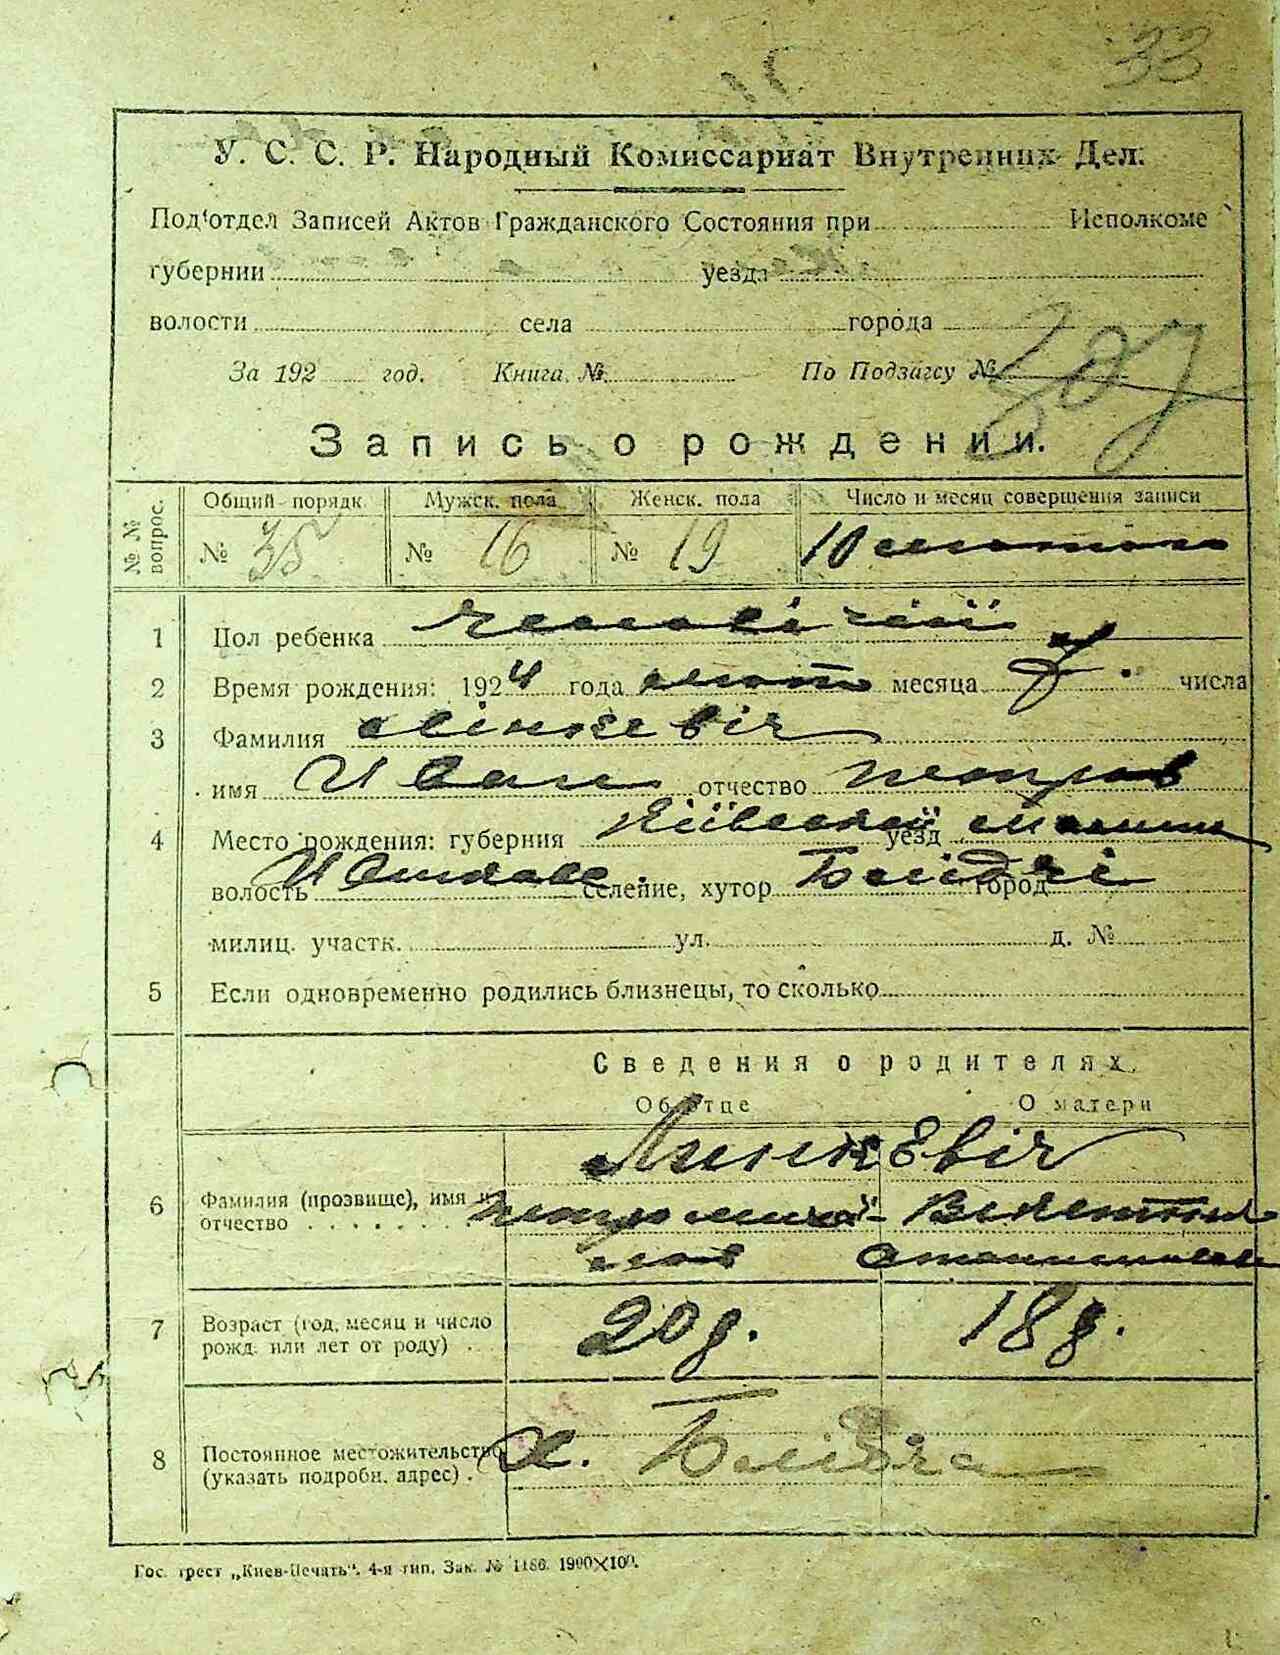 33
У. С. С. Р. Народный Комиссариат Внутренних Дел.
Под'отдел Записей Актов Гражданского Состояния при Исполкоме
губернии уезда
волости села города
За 192 год. Книга № По Подзагсу №
Запись о рождении.
№ № вопрос. Общий порядк. Мужск. пола Женск. пола Число и месяц совершения записи
№ 35 № 16 № 19 10 лютого
1 Пол ребенка чоловічий
2 Время рождения: 1924 года лют месяца 7. числа
3 Фамилия Лінкевіч
имя Иван отчество Петров
4 Место рождения: губерния Київской уезд Малин
волость селение, хутор город
милиц. участк. ул. д. №
5 Если одновременно родились близнецы, то сколько
Сведения о родителях.
Об отце О матери
Линкевіч
6 Фамилия (прозвище), имя и отчество Петро Михай-
лов
7 Возраст (год, месяц и число рожд. или лет от роду) 20 д. 18 д.
8 Постоянное местожительство (указать подробн. адрес) х.
Гос. трест „Киев-Печать". 4-я тип. Зак. № 1186. 1900×100.